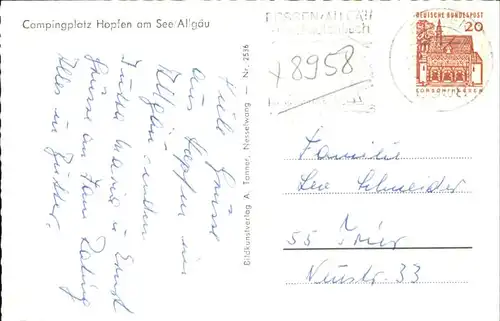 Campingplatz Hopfen am See/Allgäu
Viele Grüsse
aus Hopfen im
Allgäu senden
Jutta Maria u. Ernst
Grüsse an Fam.
Alles in Butter.
Bildkunstverlag A. Tanner, Nesselwang — Nr. 2536
FÜSSEN/ALLGÄU
+8958
DEUTSCHE BUNDESPOST
20
LORSCH/HESSEN
Familie
Leo Schneider
55 Trier
Neustr. 33